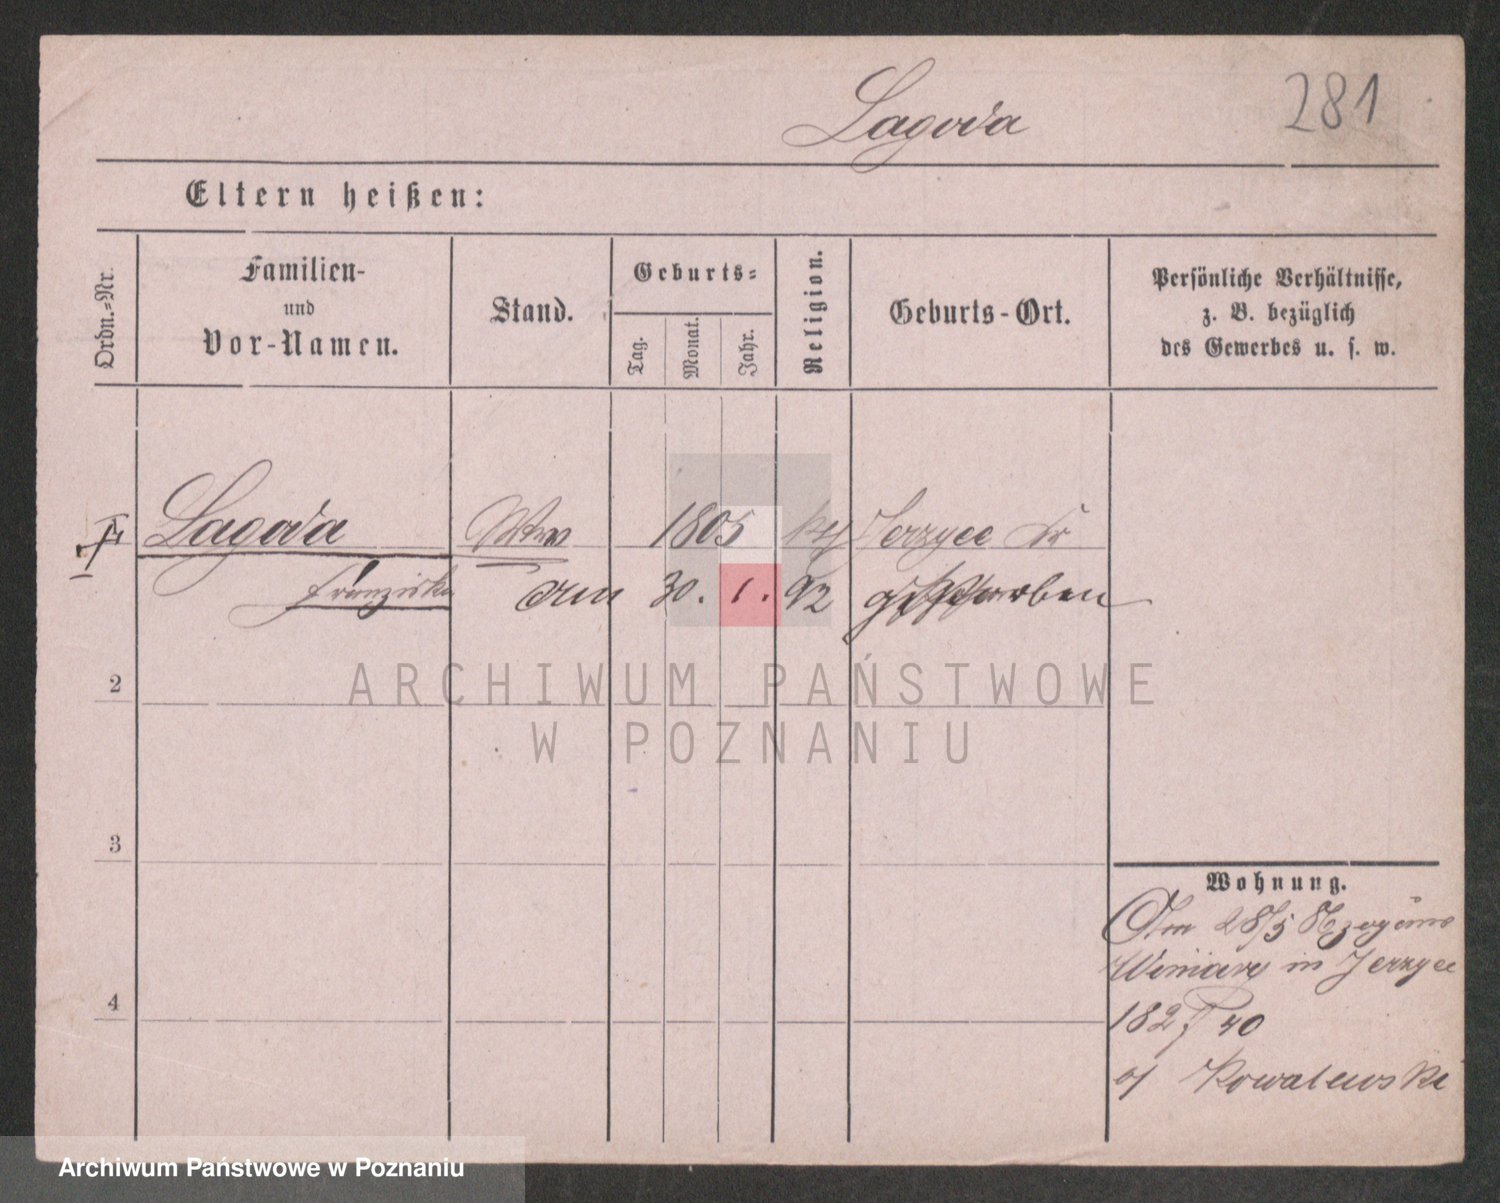 Lagoda
281
Eltern heißen:
Ordn.-Nr.
Familien-
und
Vor-Namen.
Stand.
Geburts-
Tag.
Monat.
Jahr.
Religion.
Geburts-Ort.
Persönliche Verhältnisse,
z. B. bezüglich
des Gewerbes u. s. w.
1 Lagoda Wwe 1805 kth Jerzyce
Franziska am 30. 1. 92 gestorben
ARCHIWUM PAŃSTWOWE
W POZNANIU
2
3
4
Wohnung.
28/5
Winiary in Jerzyce
182 40
Kowalewski
Archiwum Państwowe w Poznaniu